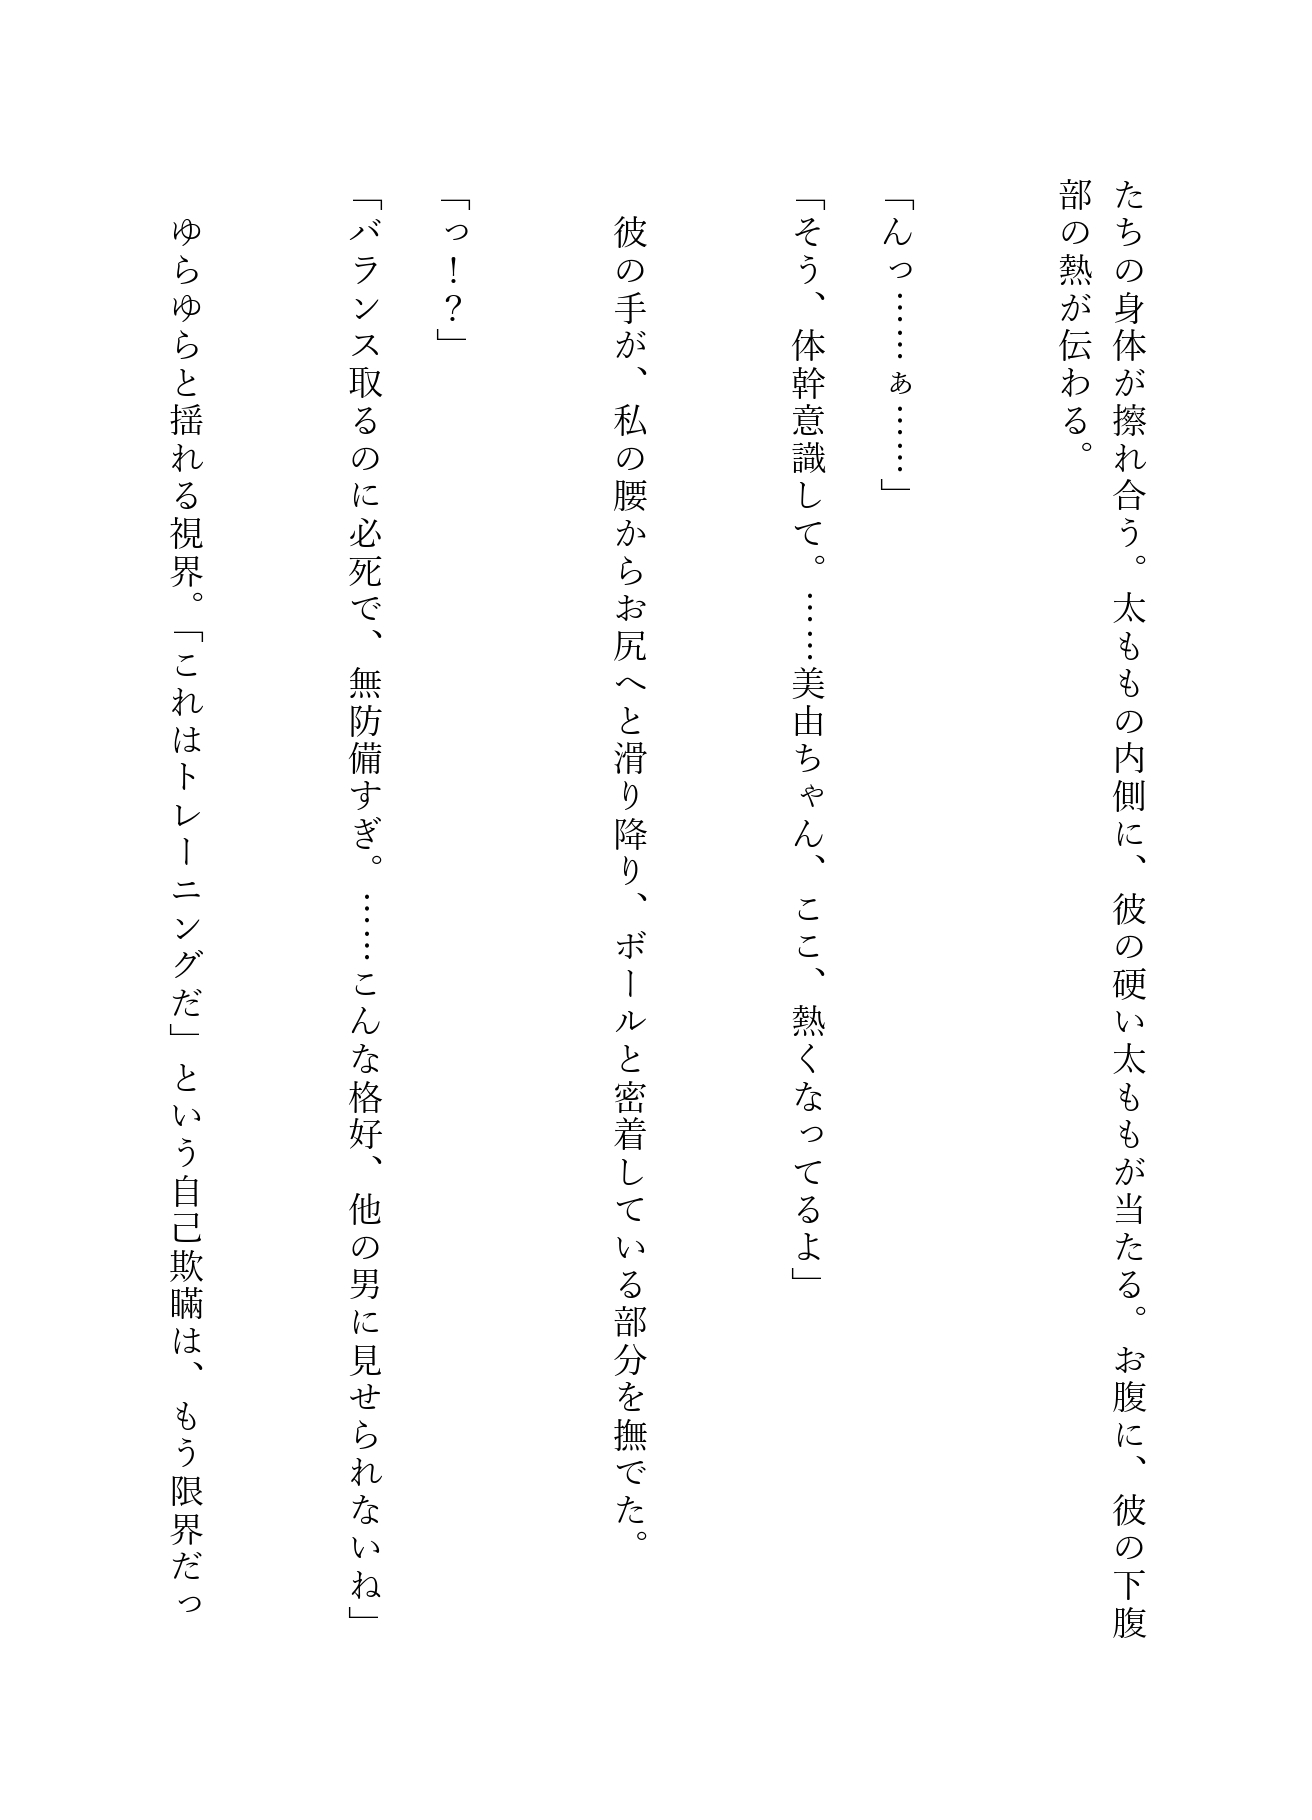 たちの身体が擦れ合う。太ももの内側に、彼の硬い太ももが当たる。お腹に、彼の下腹
部の熱が伝わる。
「んっ……ぁ……」
「そう、体幹意識して。……美由ちゃん、ここ、熱くなってるよ」
彼の手が、私の腰からお尻へと滑り降り、ボールと密着している部分を撫でた。
「っ！？」
「バランス取るのに必死で、無防備すぎ。……こんな格好、他の男に見せられないね」
ゆらゆらと揺れる視界。「これはトレーニングだ」という自己欺瞞は、もう限界だっ